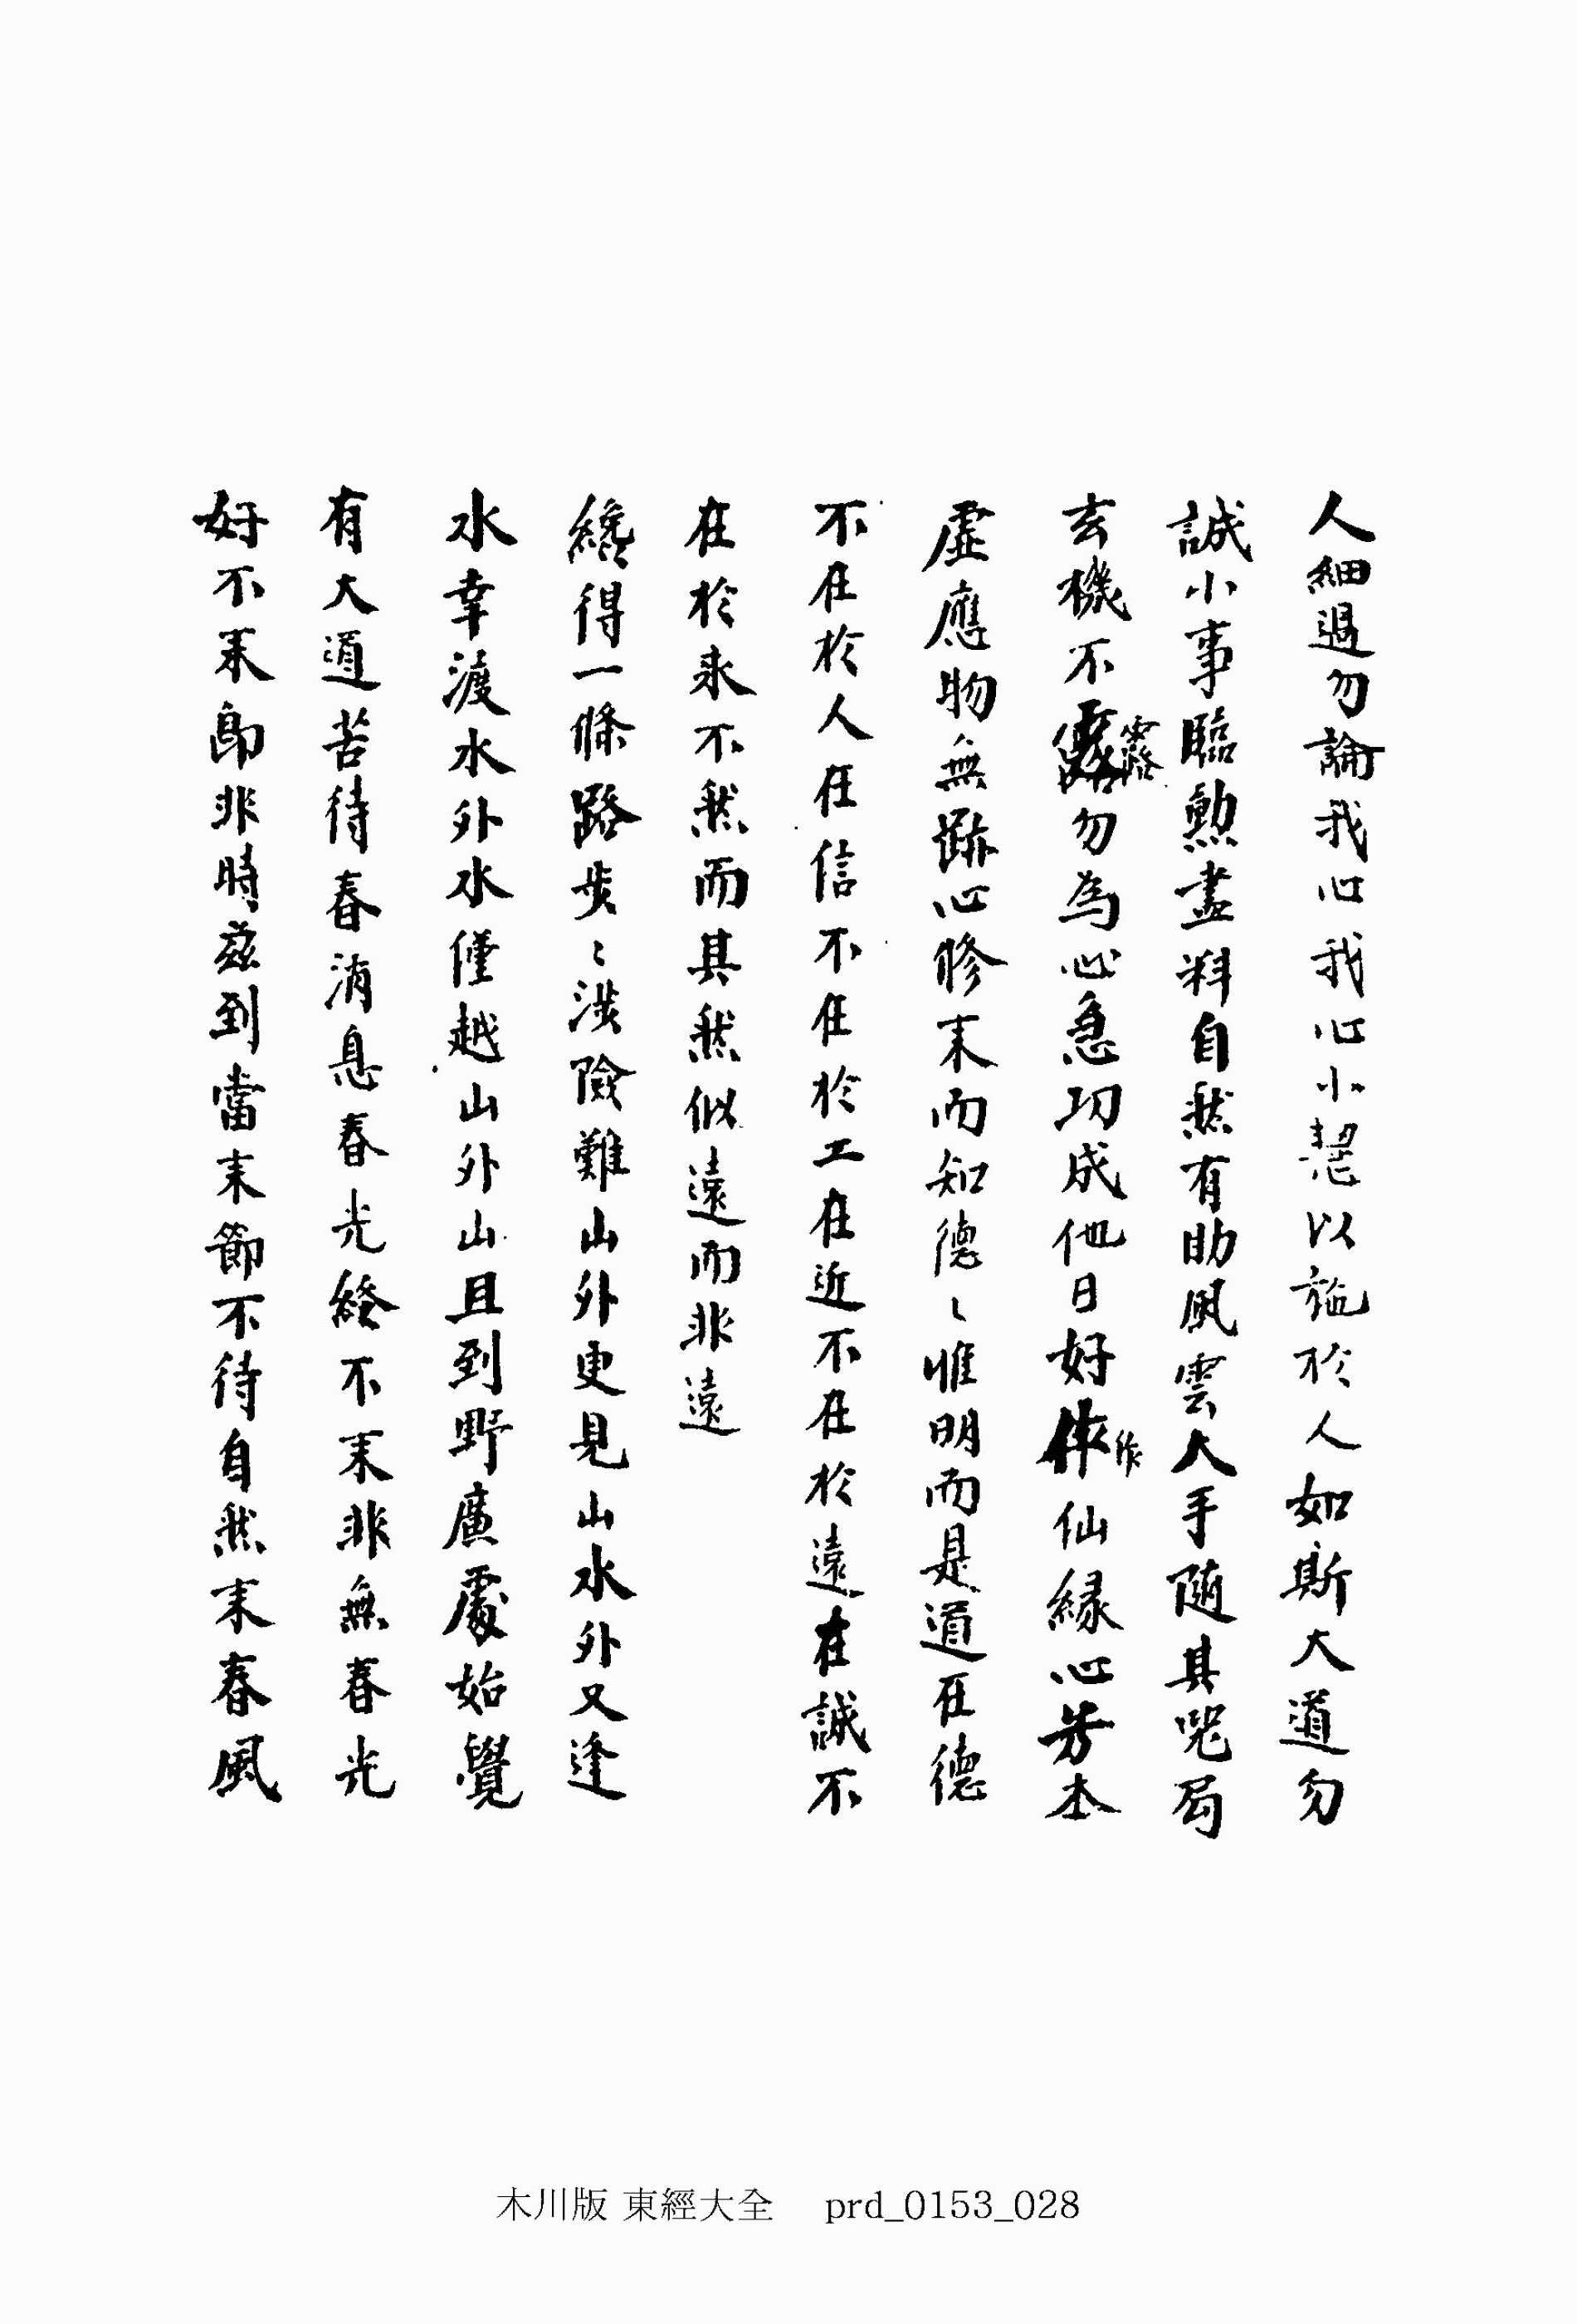 人細過勿論我心我心小慧以施於人如斯大道勿
誠小事臨勳盡料自然有助風雲大手隨其器局
玄機不露勿為心急功成他日好作仙緣心芳本
露
作
虛應物無跡心修來而知德〻惟明而是道在德
不在於人在信不在於工在近不在於遠在誠不
在於求不然而其然似遠而非遠
纔得一條路步〻涉險難山外更見山水外又逢
水幸渡水外水僅越山外山且到野廣處始覺
有大道苦待春消息春光終不來非無春光
好不來即非時茲到當來節不待自然來春風
木川版 東經大全 prd_0153_028